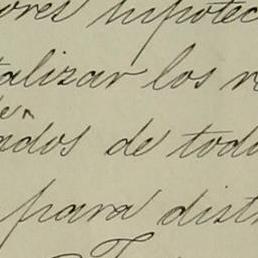 ores hipotec
talizar los r
ados de todo
para dist